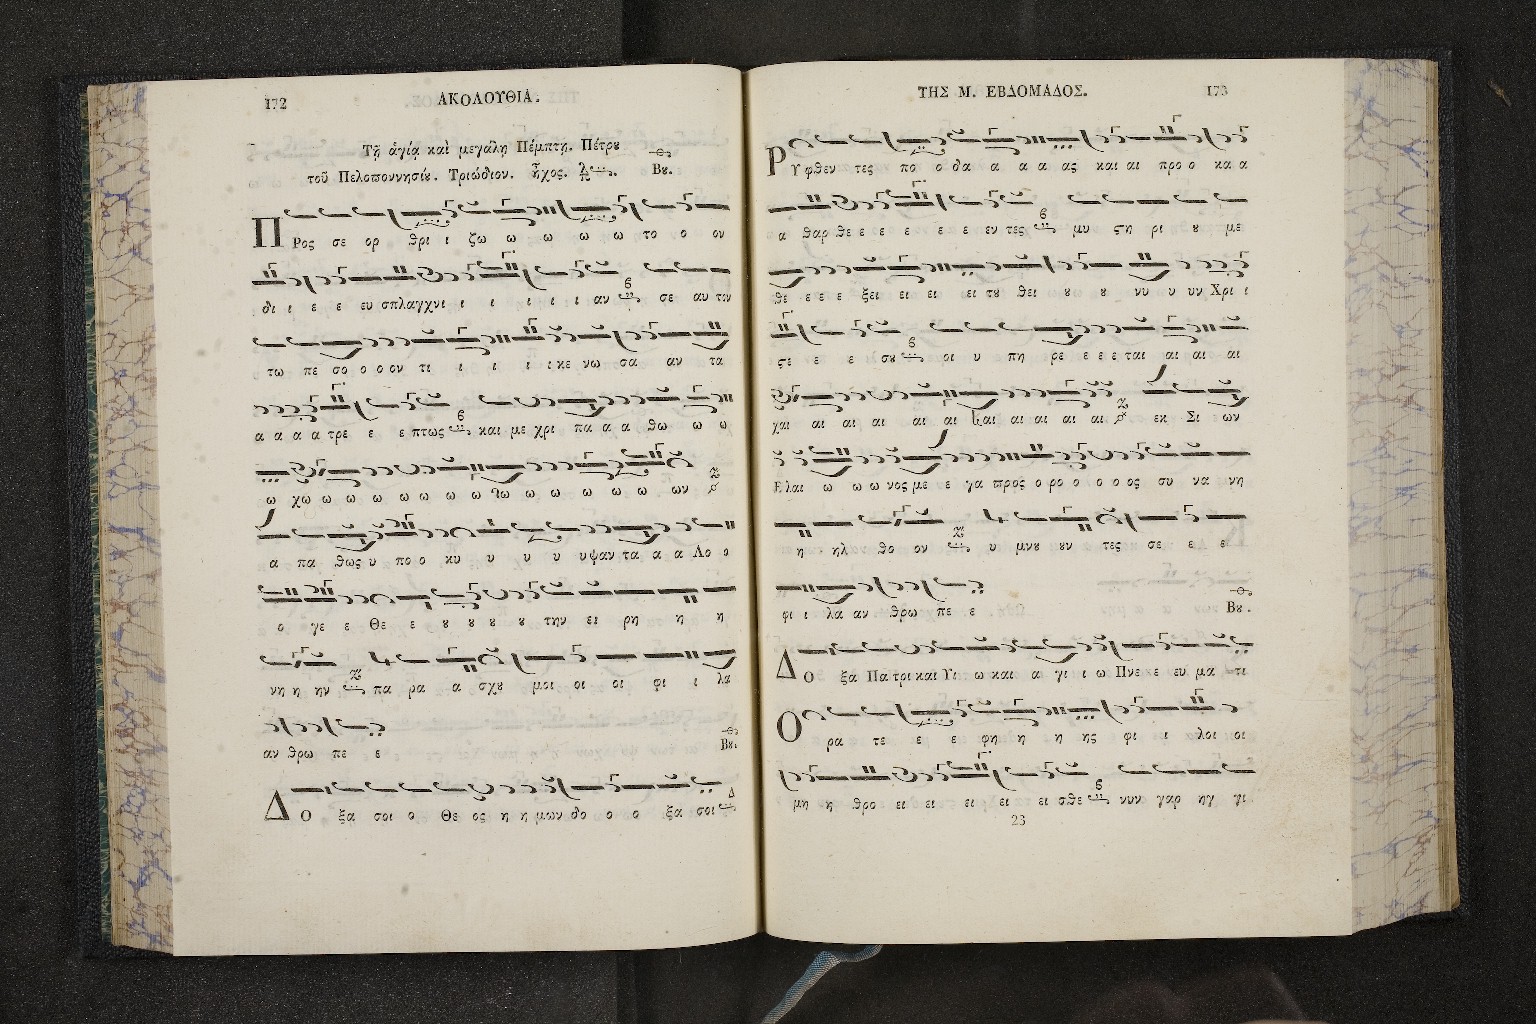 172
ΑΚΟΛΟΥΘΙΑ.
Τῇ ἁγίᾳ καὶ μεγάλῃ Πέμπτῃ. Πέτρȣ
τοῦ Πελοποννησίȣ. Τριώδιον. ἦχος. Βȣ.
ΠΡος σε ορ θρι ι ζω ω ω ω ω το ο ον
δι ι ε ε ευ σπλαγχνι ι ι ι ι ι αν σε αυ τον
τω πε σο ο ο ον τι ι ι ι ι κε νω σα αν τα
α α α α τρε ε ε πτως και με χρι πα α α θω ω ω
ω χω ω ω ω ω ω ω ω ω ω ω ω ω ω ων
α πα θως υ πο ο κυ υ υ υ υψαν τα α α Λο ο
ο γε ε Θε ε ȣ ȣ ȣ ȣ την ει ρη η η
νη η ην πα ρα α σχȣ μοι οι οι φι ι λα
αν θρω πε ε
Βȣ.
ΔΟ ξα σοι ο Θε ος η η μων δο ο ο ξα σοι
ΤΗΣ Μ. ΕΒΔΟΜΑΔΟΣ.
173
ΡΥφθεν τες πο ο δα α α α ας και αι προ ο κα α
α θαρ θε ε ε ε ε ε εν τες μυ ϛη ρι ȣ με
θε ε ε ε ξει ει ει ει τȣ θει ȣ ȣ νυ υ υν Χρι ι
ϛε ε ε σȣ οι υ πη ρε ε ε ε ται αι αι αι
χαι αι αι αι αι αι και αι αι αι αι εκ Σι ων
Ελαι ω ω ω νος με ε γα προς ο ρο ο ο ο ος συ να νη
η ηλ θο ον υ μνȣ ȣν τες σε ε ε
φι ι λα αν θρω πε ε
Βȣ.
ΔΟ ξα Πα τρι και Υι ω και α γι ι ω Πνε ε ευ μα τι
Ο ρα τε ε ε φη η η ης φι ι λοι οι
μη η θρο ει ει ει ει ει σθε νυν γαρ ηγ γι
23